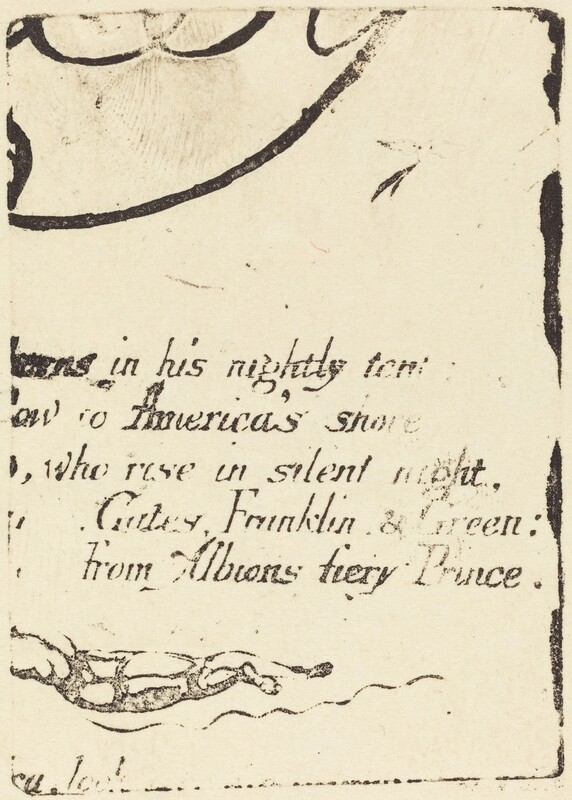 burns in his nightly tent
low to America's shore
, who rose in silent night,
Gates, Franklin & Green:
from Albions fiery Prince.
ca, look